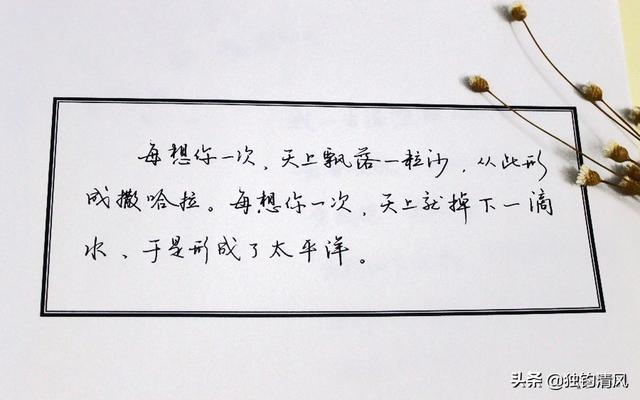 每想你一次，天上飘落一粒沙，从此形
成撒哈拉。每想你一次，天上就掉下一滴
水，于是形成了太平洋。
头条 @独钓清风